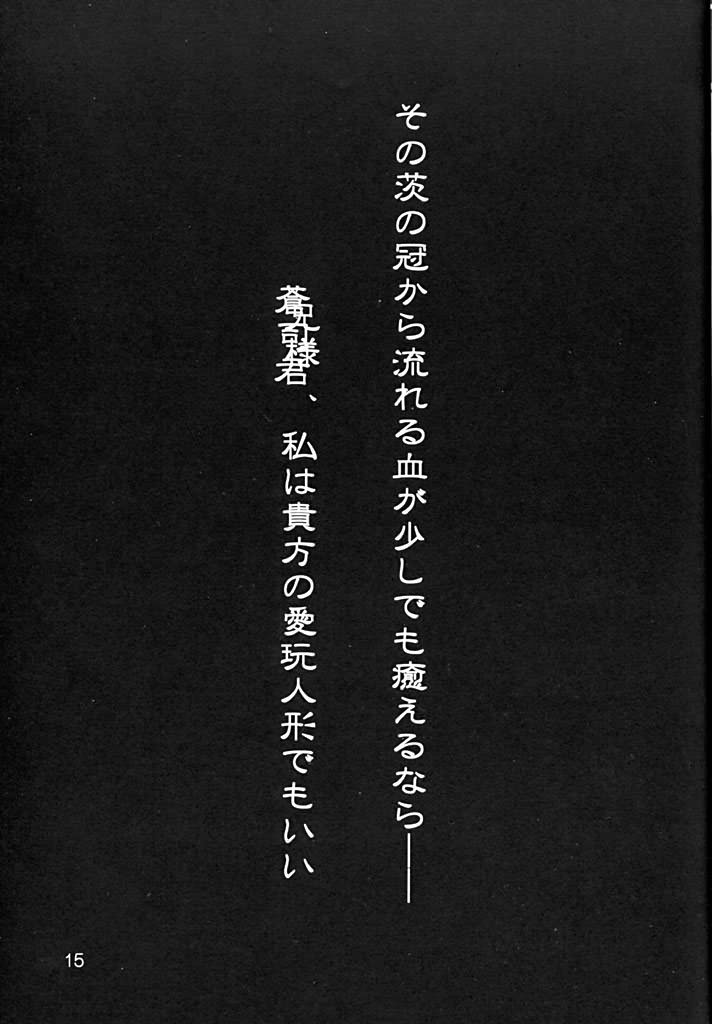 その茨の冠から流れる血が少しでも癒えるなら――
、私は貴方の愛玩人形でもいい
15